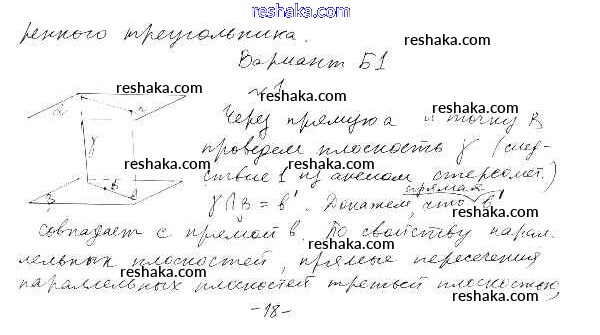 reshaka.com
ренного треугольника.
reshaka.com
Вариант Б1
№1
reshaka.com
Через прямую а и точку В
проведем плоскость γ (след-
ствие 1 из аксиом стереомет.)
прямая
γ∩β = b'. Докажем, что b'
reshaka.com
совпадает с прямой b. По свойству парал-
лельных плоскостей, прямые пересечения
reshaka.com
параллельных плоскостей третьей плоскостью,
reshaka.com
-18-